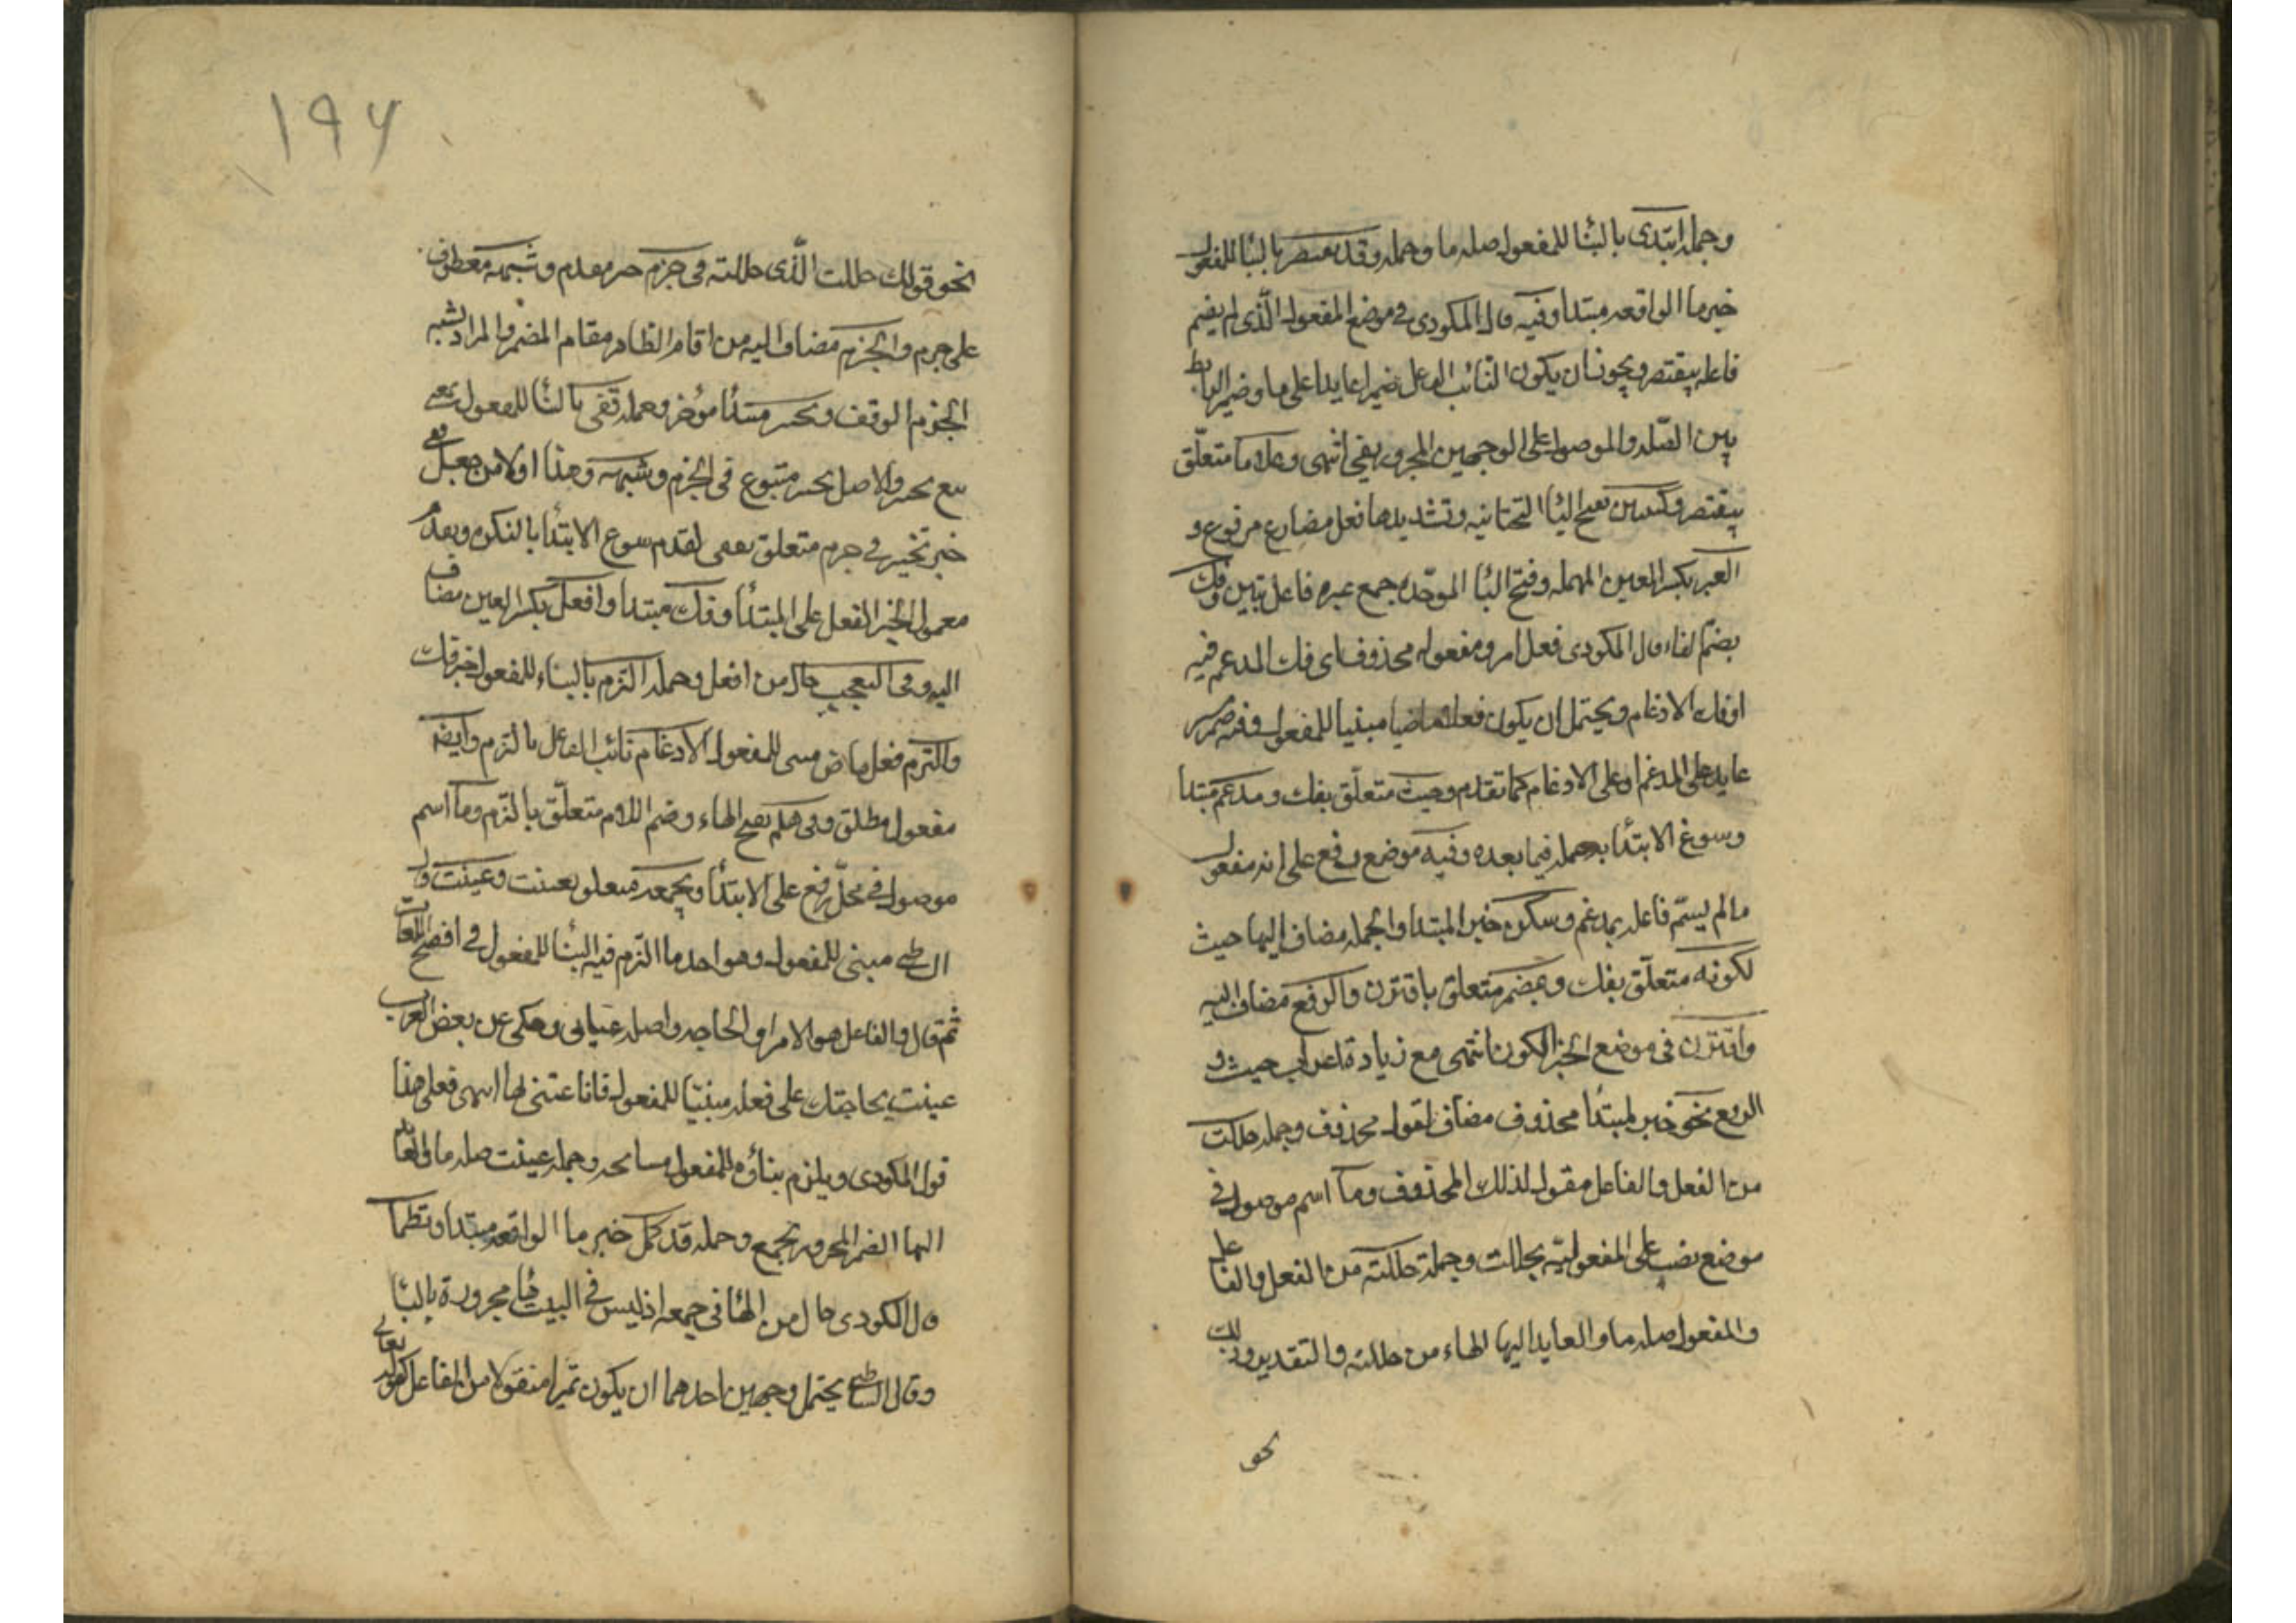 وجملة ابتدى بالبنا للمفعول صلة ما وجملة وقد يقتصر بالبنا للمفعول
خبر ما الواقعة مبتدا وفيه قال المكودى فى موضع المفعول الذى لم يسم
فاعله بيقتصر ويجوز ان يكون النائب الفاعل ضميرا عايدا على ما وضمير الرابط
بين الصلة والموصول على الوجهين المجرور بفى انتهى وعلا ما متعلق
بيقتصر وكتبين بفتح اليا التحتانيه وتشديدها فعل مضارع مرفوع و
العبر بكسر العين المهمله وفتح البا الموحده جمع عبره فاعل تبين وفك
بضم الفاء قال المكودى فعل امر ومفعوله محذوف اى فك المدغم فيه
او فك الادغام ويحتمل ان يكون فعلا ماضيا مبنيا للمفعول وفيه ضمير
عايد على المدغم او على الادغام كما تقدم وحيث متعلق بفك ومدغم مبتدا
وسوغ الابتدا به عمله فيما بعده وفيه موضع رفع على انه مفعول
مالم يسم فاعله بمدغم وسكن خبر المبتدا والجملة مضاف اليها حيث
لكونه متعلق بفك وبمضمر متعلق باقترن والرفع مضاف اليه
واقترن فى موضع الخبر لكون انتهى مع زيادة اعراب حيث و
الرفع نحو خبر لمبتدا محذوف مضاف لقول محذوف وجملة حللت
من الفعل والفاعل مقول لذلك المحذوف وما اسم موصول فى
موضع نصب على المفعوليه بحللت وجملة حللته من الفعل والفاعل
والمفعول صلة ما والعايد اليها الهاء من حللته والتقدير وذلك
نحو
١٩٦
نحو قولك حللت الذى حللته وفى جزم خبر مقدم وشبه معطوف
على جزم والجزم مضاف اليه من اقامة الظاهر مقام المضمر والمراد بشبه
الجزم الوقف وتخيير مبتدأ مؤخر وجملة قفى بالبنا للمفعول نعت
تخيير والاصل تخيير متبوع فى الجزم وشبهه وهذا اولا من جعل قفى
خبر تخيير فى جزم متعلق بقفى لتقدم مسوغ الابتدا بالنكره وبعدم
معمول الخبر الفعل على المبتدأ وفك مبتدا وافعل بكسر العين مضاف
اليه وفى التعجب حال من افعل وجملة التزم بالبناء للمفعول خبر فك
والتزم فعل ماض مبنى للمفعول الادغام نائب الفاعل بالتزم وايضا
مفعول مطلق وفى هلم بفتح الهاء وضم اللام متعلق بالتزم وما اسم
موصول فى محل رفع على الابتدا وبجمعه متعلق بعنيت وعنيت قال
الشاطبى مبنى للمفعول وهو احد ما التزم فيه البنا للمفعول فى افصح اللغات
ثم قال والفاعل هو الامر او الحاجة واصله عنيانى وحكى عن بعض العرب
عنيت بحاجتك على فعله مبنيا للمفعول فانا عتنى لها انتهى فعلى هذا
قول المكودى ويلزم بناؤه للمفعول مسامحه وجملة عنيت صلة ما والعائد
اليها الضمير المجرور بجمع وجملة قد كمل خبر ما الواقعة مبتدا ونظما
قال المكودى حال من الها فى جمعه اذ ليس فى البيت ها مجرورة بالبا
وقال الشاطبى يحتمل وجهين احدهما ان يكون تمييزا منقولا من الفاعل كقوله تعالى